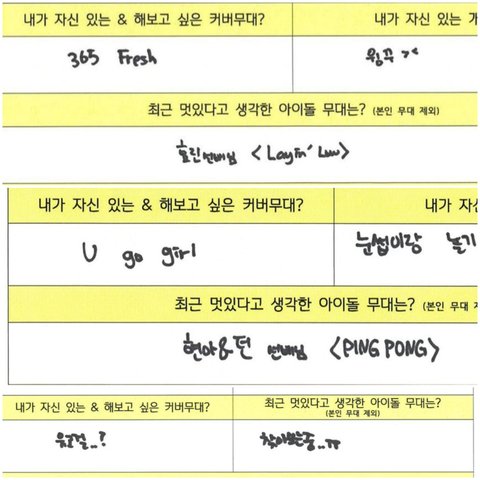 내가 자신 있는 & 해보고 싶은 커버무대?
내가 자신 있는 개
365 Fresh
윙꾸 ><
최근 멋있다고 생각한 아이돌 무대는? (본인 무대 제외)
효린선배님 <Layin' Luv>
내가 자신 있는 & 해보고 싶은 커버무대?
내가 자신
U go girl
눈썹이랑 놀기
최근 멋있다고 생각한 아이돌 무대는? (본인 무대 제
현아&던 선배님 <PING PONG>
내가 자신 있는 & 해보고 싶은 커버무대?
최근 멋있다고 생각한 아이돌 무대는?
(본인 무대 제외)
유고걸..?
찾아보는중..ㅠㅠ